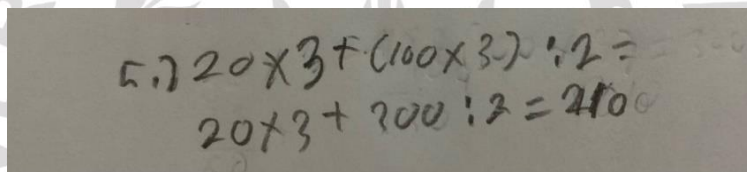 5.) 20 × 3 + (100 × 3) : 2 =
20 × 3 + 300 : 2 = 210